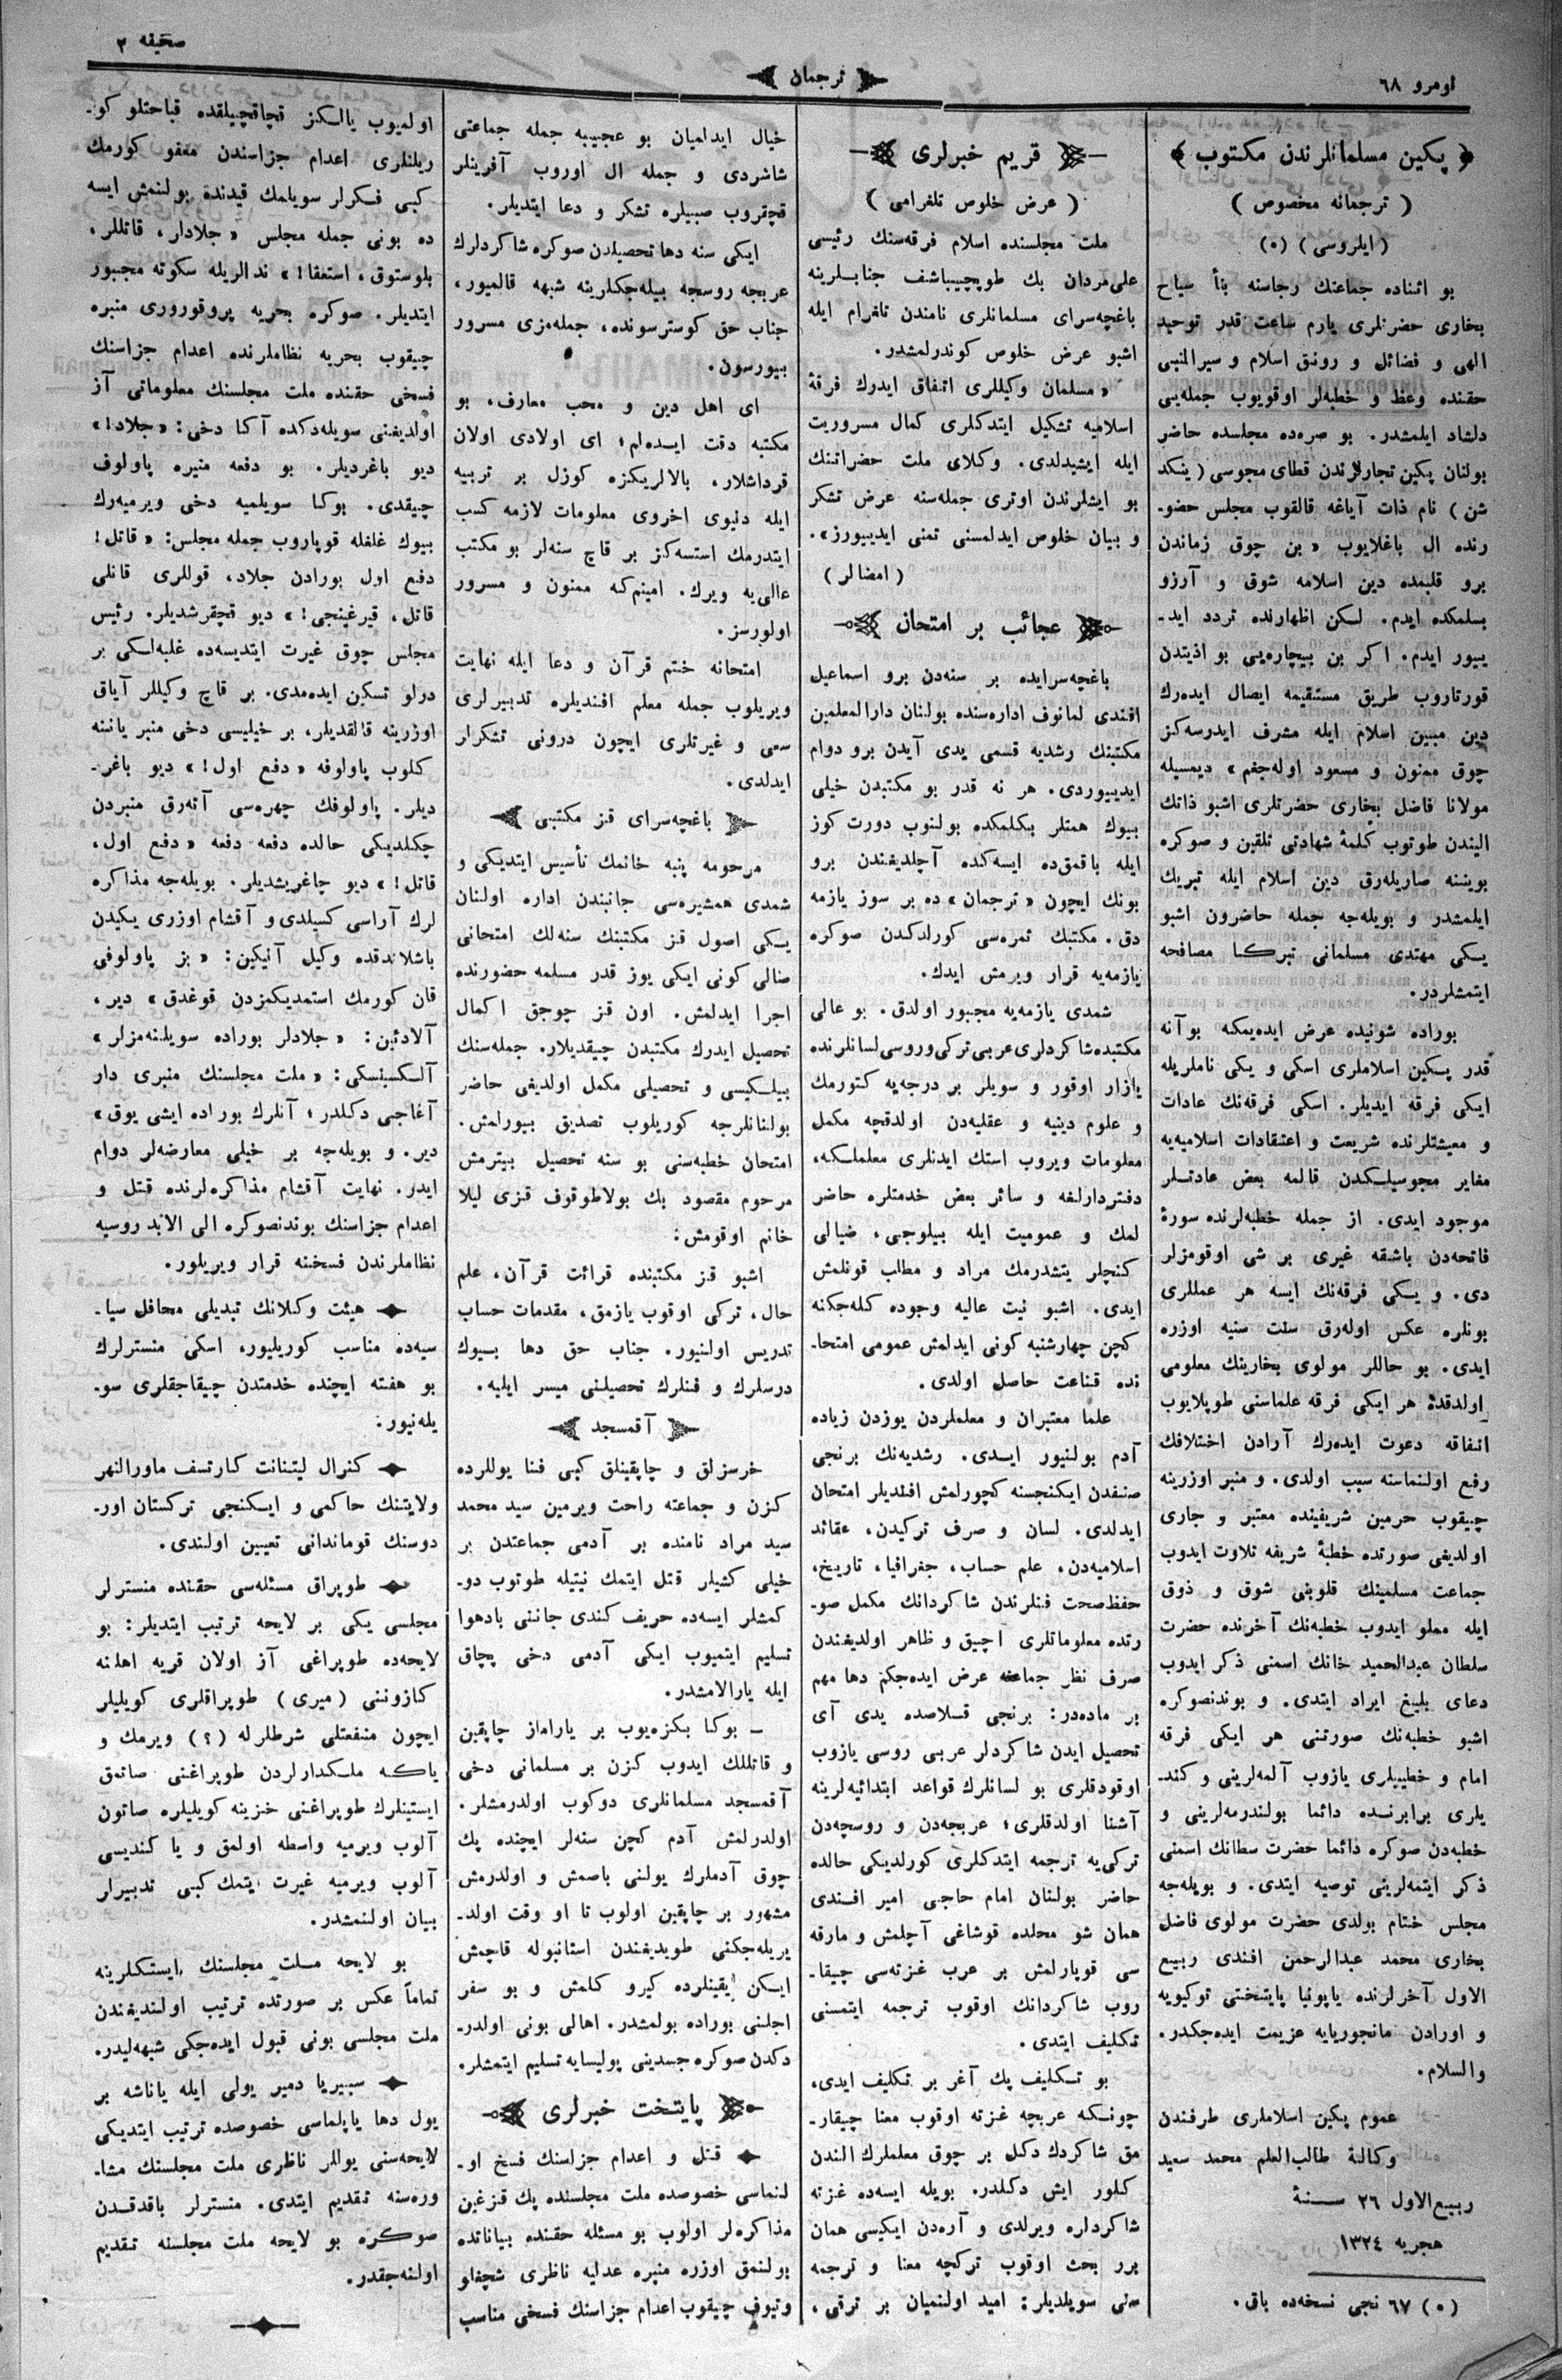 نومرو ٦٨
ترجمان
صحیفه ٣
پكین مسلمانلرندن مكتوب
( ترجمانه مخصوص )
( ایلروسی ) (٥)
بو اثناده جماعتك رجاسنه بنأ سیاح
بخاری حضرتلری یارم ساعت قدر توحید
الهی و فضائل و رونق اسلام و سیرالنبی
حقنده وعظ و خطبه‌لر اوقویوب جمله‌یی
دلشاد ایلمشدر. بو صره‌ده مجلسده حاضر
بولنان پكین تجارلرندن قطای مجوسی ( ینكد
شن ) نام ذات آیاغه قالقوب مجلس حضو-
رنده ال باغلایوب «بن چوق زماندن
برو قلبمده دین اسلامه شوق و آرزو
بسلمكده ایدم. لكن اظهارنده تردد اید-
ییور ایدم. اكر بن بیچاره‌یی بو اذیتدن
قورتاروب طریق مستقیمه ایصال ایده‌رك
دین مبین اسلام ایله مشرف ایدرسه‌كز
چوق ممنون و مسعود اوله‌جغم» دیمسیله
مولانا فاضل بخاری حضرتلری اشبو ذاتك
الیندن طوتوب كلمهٔ شهادتی تلقین و صوكره
بویننه صاریله‌رق دین اسلام ایله تبریك
ایلمشدر و بویله‌جه جمله حاضرون اشبو
یكی مهتدی مسلمانی تبركا مصافحه
ایتمشلردر.
بوراده شونیده عرض ایده‌یمكه بوآنه
قدر پكین اسلاملری اسكی و یكی ناملریله
ایكی فرقه ایدیلر. اسكی فرقه‌نك عادات
و معیشتلرنده شریعت و اعتقادات اسلامیه‌یه
مغایر مجوسیلكدن قالمه بعض عادتلر
موجود ایدی. از جمله خطبه‌لرنده سورهٔ
فاتحه‌دن باشقه غیری بر شی اوقومزلر
دی. و یكی فرقه‌نك ایسه هر عمللری
بونلره عكس اوله‌رق سنت سنیه اوزره
ایدی. بو حاللر مولوی بخارینك معلومی
اولدقده هر ایكی فرقه علماسنی طوپلایوب
اتفاقه دعوت ایده‌رك آرادن اختلافك
رفع اولنماسنه سبب اولدی. و منبر اوزرینه
چیقوب حرمین شریفینده معتبر و جاری
اولدیغی صورتده خطبهٔ شریفه تلاوت ایدوب
جماعت مسلمینك قلوبنی شوق و ذوق
ایله مملو ایدوب خطبه‌نك آخرنده حضرت
سلطان عبدالحمید خانك اسمنی ذكر ایدوب
دعای بلیغ ایراد ایتدی. و بوندنصوكره
اشبو خطبه‌نك صورتنی هر ایكی فرقه
امام و خطیبلری یازوب آلمه‌لرینی و كند-
یلری برابرنده دائما بولندرمه‌لرینی و
خطبه‌دن صوكره دائما حضرت سطانك اسمنی
ذكر ایتمه‌لرینی توصیه ایتدی. و بویله‌جه
مجلس ختام بولدی حضرت مولوی فاضل
بخاری محمد عبدالرحمن افندی ربیع
الاول آخرلرنده یاپونیا پایتختی توكیویه
و اورادن مانجوریایه عزیمت ایده‌جكدر.
والسلام.
عموم پكین اسلاملری طرفندن
وكالة طالب‌العلم محمد سعید
ربیع‌الاول ٢٦ سنهٔ
هجریه ١٣٢٤
(٥) ٦٧ نجی نسخه‌ده باق.
قریم خبرلری
( عرض خلوص تلغرامی )
ملت مجلسنده اسلام فرقه‌سنك رئیسی
علی‌مردان بك طوپچیباشف جنابلرینه
باغچه‌سرای مسلمانلری نامندن تلغرام ایله
اشبو عرض خلوص كوندرلمشدر.
«مسلمان وكیللری اتفاق ایدرك فرقهٔ
اسلامیه تشكیل ایتدكلری كمال مسروریت
ایله ایشیدلدی. وكلای ملت حضراتنك
بو ایشلرندن اوتری جمله‌سنه عرض تشكر
و بیان خلوص ایدلمسنی تمنی ایدییورز».
( امضالر )
عجائب بر امتحان
باغچه‌سرایده بر سنه‌دن برو اسماعیل
افندی لمانوف اداره‌سنده بولنان دارالمعلمین
مكتبنك رشدیه قسمی یدی آیدن برو دوام
ایدییوردی. هر نه قدر بو مكتبدن خیلی
بیوك همتلر بكلمكده بولنوب دورت كوز
ایله باقمق‌ده ایسه‌كده آچلدیغندن برو
بونك ایچون «ترجمان» ده بر سوز یازمه
دق. مكتبك ثمره‌سی كورلدكدن صوكره
یازمه‌یه قرار ویرمش ایدك.
شمدی یازمه‌یه مجبور اولدق. بو عالی
مكتبده شاكردلری عربی تركی و روسی لسانلرنده
یازار اوقور و سویلر بر درجه‌یه كتورمك
و علوم دینیه و عقلیه‌دن اولدقچه مكمل
معلومات ویروب استك ایدنلری معلملكه،
دفتردارلغه و سائر بعض خدمتلره حاضر
لمك و عمومیت ایله بیلوجی، ضیالی
كنچلر یتشدرمك مراد و مطلب قونلمش
ایدی. اشبو نیت عالیه وجوده كله‌جكنه
كچن چهارشنبه كونی ایدلمش عمومی امتحا-
نده قناعت حاصل اولدی.
علما معتبران و معلملردن یوزدن زیاده
آدم بولنیور ایدی. رشدیه‌نك برنجی
صنفدن ایكنجسنه كچورلمش افندیلر امتحان
ایدلدی. لسان و صرف تركیدن، عقائد
اسلامیه‌دن، علم حساب، جغرافیا، تاریخ،
حفظ‌صحت فنلرندن شاكردانك مكمل صو-
رتده معلوماتلری آچیق و ظاهر اولدیغندن
صرف نظر جماعته عرض ایده‌جكم دها مهم
بر ماده‌در: برنجی قلاصده یدی آی
تحصیل ایدن شاكردلر عربی روسی یازوب
اوقودقلری بو لسانلرك قواعد ابتدائیه‌لرینه
آشنا اولدقلری؛ عربجه‌دن و روسچه‌دن
تركی‌یه ترجمه ایتدكلری كورلدیكی حالده
حاضر بولنان امام حاجی امیر افندی
همان شو محلده قوشاغی آچلمش و مارقه
سی قوپارلمش بر عرب غزته‌سی چیقا-
روب شاكردانك اوقوب ترجمه ایتمسنی
تكلیف ایتدی.
بو تكلیف پك آغر بر تكلیف ایدی،
چونكه عربچه غزته اوقوب معنا چیقار-
مق شاكردك دكل بر چوق معلملرك الندن
كلور ایش دكلدر. بویله ایسه‌ده غزته
شاكردلره ویرلدی و آره‌دن ایكیسی همان
برر بحث اوقوب تركچه معنا و ترجمه
سنی سویلدیلر: امید اولنمیان بر ترقی،
خیال ایدلمیان بو عجیبه جمله جماعتی
شاشردی و جمله ال اوروب آفرینلر
قچقروب صبیلره تشكر و دعا ایتدیلر.
ایكی سنه دها تحصیلدن صوكره شاكردلرك
عربجه روسجه بیله‌جكلرینه شبهه قالمیور،
جناب حق كوسترسونده، جمله‌مزی مسرور
بیورسون.
ای اهل دین و محب معارف، بو
مكتبه دقت ایده‌لم؛ ای اولادی اولان
قرداشلار، بالالریكزه كوزل بر تربیه
ایله دنیوی اخروی معلومات لازمه كسب
ایتدرمك استسه‌كز بر قاچ سنه‌لر بو مكتب
عالی‌یه ویرك. امینم‌كه ممنون و مسرور
اولورسز.
امتحانه ختم قرآن و دعا ایله نهایت
ویریلوب جمله معلم افندیلره تدبیرلری
سعی و غیرتلری ایچون درونی تشكرلر
ایدلدی.
باغچه‌سرای قز مكتبی
مرحومه پنبه خانمك تأسیس ایتدیكی و
شمدی همشیره‌سی جانبندن اداره اولنان
یكی اصول قز مكتبنك سنه‌لك امتحانی
صالی كونی ایكی یوز قدر مسلمه حضورنده
اجرا ایدلمش. اون قز چوجق اكمال
تحصیل ایدرك مكتبدن چیقدیلر. جمله‌سنك
بیلكیسی و تحصیلی مكمل اولدیغی حاضر
بولنانلرجه كوریلوب تصدیق بیورلمش.
امتحان خطبه‌سنی بو سنه تحصیل بیترمش
مرحوم مقصود بك بولاطوقوف قزی لیلا
خانم اوقومش:
اشبو قز مكتبنده قرائت قرآن، علم
حال، تركی اوقوب یازمق، مقدمات حساب
تدریس اولنیور. جناب حق دها بیوك
درسلرك و فنلرك تحصیلنی میسر ایلیه.
آقمسجد
خرسزلق و چاپقینلق كبی فنا یوللرده
كزن و جماعته راحت ویرمین سید محمد
سید مراد نامنده بر آدمی جماعتدن بر
خیلی كشیلر قتل ایتمك نیتیله طوتوب دو-
كمشلر ایسه‌ده حریف كندی جاننی بادهوا
تسلیم ایتمیوب ایكی آدمی دخی پچاق
ایله یارالامشدر.
– بوكا بكزه‌یوب بر یاراماز چاپقین
و قاتللك ایدوب كزن بر مسلمانی دخی
آقمسجد مسلمانلری دوكوب اولدرمشلر.
اولدرلمش آدم كچن سنه‌لر ایچنده پك
چوق آدملرك یولنی باصمش و اولدرمش
مشهور بر چاپقین اولوب تا او وقت اولد-
یریله‌جكنی طویدیغندن استانبوله قاچمش
ایكن یقینلرده كیرو كلمش و بو سفر
اجلنی بوراده بولمشدر. اهالی بونی اولدر-
دكدن صوكره جسدینی پولیسایه تسلیم ایتمشلر.
پایتخت خبرلری
قتل و اعدام جزاسنك فسخ او-
لنماسی خصوصده ملت مجلسنده پك قزغین
مذاكره‌لر اولوب بو مسئله حقنده بیاناتده
بولنمق اوزره منبره عدلیه ناظری شچغلو
وتیوف چیقوب اعدام جزاسنك فسخی مناسب
اولمیوب یالكز قچاقچیلقده قباحتلو كو-
ریلنلری اعدام جزاسندن معفو كورمك
كبی فكرلر سویلمك قیدنده بولنمش ایسه
ده بونی جمله مجلس «جلادار، قاتللر،
بلوستوق، استعفا!» ندالریله سكوته مجبور
ایتدیلر. صوكره بحریه پروقوروری منبره
چیقوب بحریه نظاملرنده اعدام جزاسنك
فسخی حقنده ملت مجلسنك معلوماتی آز
اولدیغنی سویله‌دكده آكا دخی: «جلاد!»
دیو باغردیلر. بو دفعه منبره پاولوف
چیقدی. بوكا سویلمیه دخی ویرمیه‌رك
بیوك غلغله قوپاروب جمله مجلس: «قاتل!
دفع اول بورادن جلاد، قوللری قانلی
قاتل، قیرغینجی!» دیو قچقرشدیلر. رئیس
مجلس چوق غیرت ایتدیسه‌ده غلبه‌لكی بر
درلو تسكین ایده‌مدی. بر قاچ وكیللر آیاق
اوزرینه قالقدیلر، بر خیلیسی دخی منبر یاننه
كلوب پاولوفه «دفع اول!» دیو باغر-
دیلر. پاولوفك چهره‌سی آته‌رق منبردن
چكلدیكی حالده دفعه دفعه «دفع اول،
قاتل!» دیو چاغریشدیلر. بویله‌جه مذاكره
لرك آراسی كسیلدی و آقشام اوزری یكیدن
باشلاندقده وكیل آنیكین: «بز پاولوفی
قان كورمك استمدیكمزدن قوغدق» دیر،
آلادئین: «جلادلر بوراده سویلنه‌مزلر»
آلكسینسكی: «ملت مجلسنك منبری دار
آغاجی دكلدر؛ آنلرك بوراده ایشی یوق»
دیر. و بویله‌جه بر خیلی معارضه‌لر دوام
ایدر. نهایت آقشام مذاكره‌لرنده قتل و
اعدام جزاسنك بوندنصوكره الی الابد روسیه
نظاملرندن فسخنه قرار ویریلور.
هیئت وكلانك تبدیلی محافل سیا-
سیه‌ده مناسب كوریلیور، اسكی منسترلرك
بو هفته ایچنده خدمتدن چیقاجقلری سو-
یله‌نیور.
كنرال لیتنانت كارتسف ماورالنهر
ولایتنك حاكمی و ایكنجی تركستان اور-
دوسنك قوماندانی تعیین اولندی.
طوپراق مسئله‌سی حقنده منسترلر
مجلسی یكی بر لایحه ترتیب ایتدیلر: بو
لایحه‌ده طوپراغی آز اولان قریه اهلنه
كازوننی (میری) طوپراقلری كویلیلر
ایچون منفعتلی شرطلرله (؟) ویرمك و
یاكه ملكدارلردن طوپراغنی صاتمق
ایستینلرك طوپراغنی خزینه كویلیلره صاتون
آلوب ویرمیه واسطه اولمق و یا كندیسی
آلوب ویرمیه غیرت ایتمك كبی تدبیرلر
بیان اولنمشدر.
بو لایحه ملت مجلسنك ایستكلرینه
تماماً عكس بر صورتده ترتیب اولندیغندن
ملت مجلسی بونی قبول ایده‌جكی شبهه‌لیدر.
سیبریا دمیر یولی ایله یاناشه بر
یول دها یاپلماسی خصوصده ترتیب ایتدیكی
لایحه‌سنی یوللر ناظری ملت مجلسنك مشا-
وره‌سنه تقدیم ایتدی. منسترلر باقدقدن
صوكره بو لایحه ملت مجلسنه تقدیم
اولنه‌جقدر.